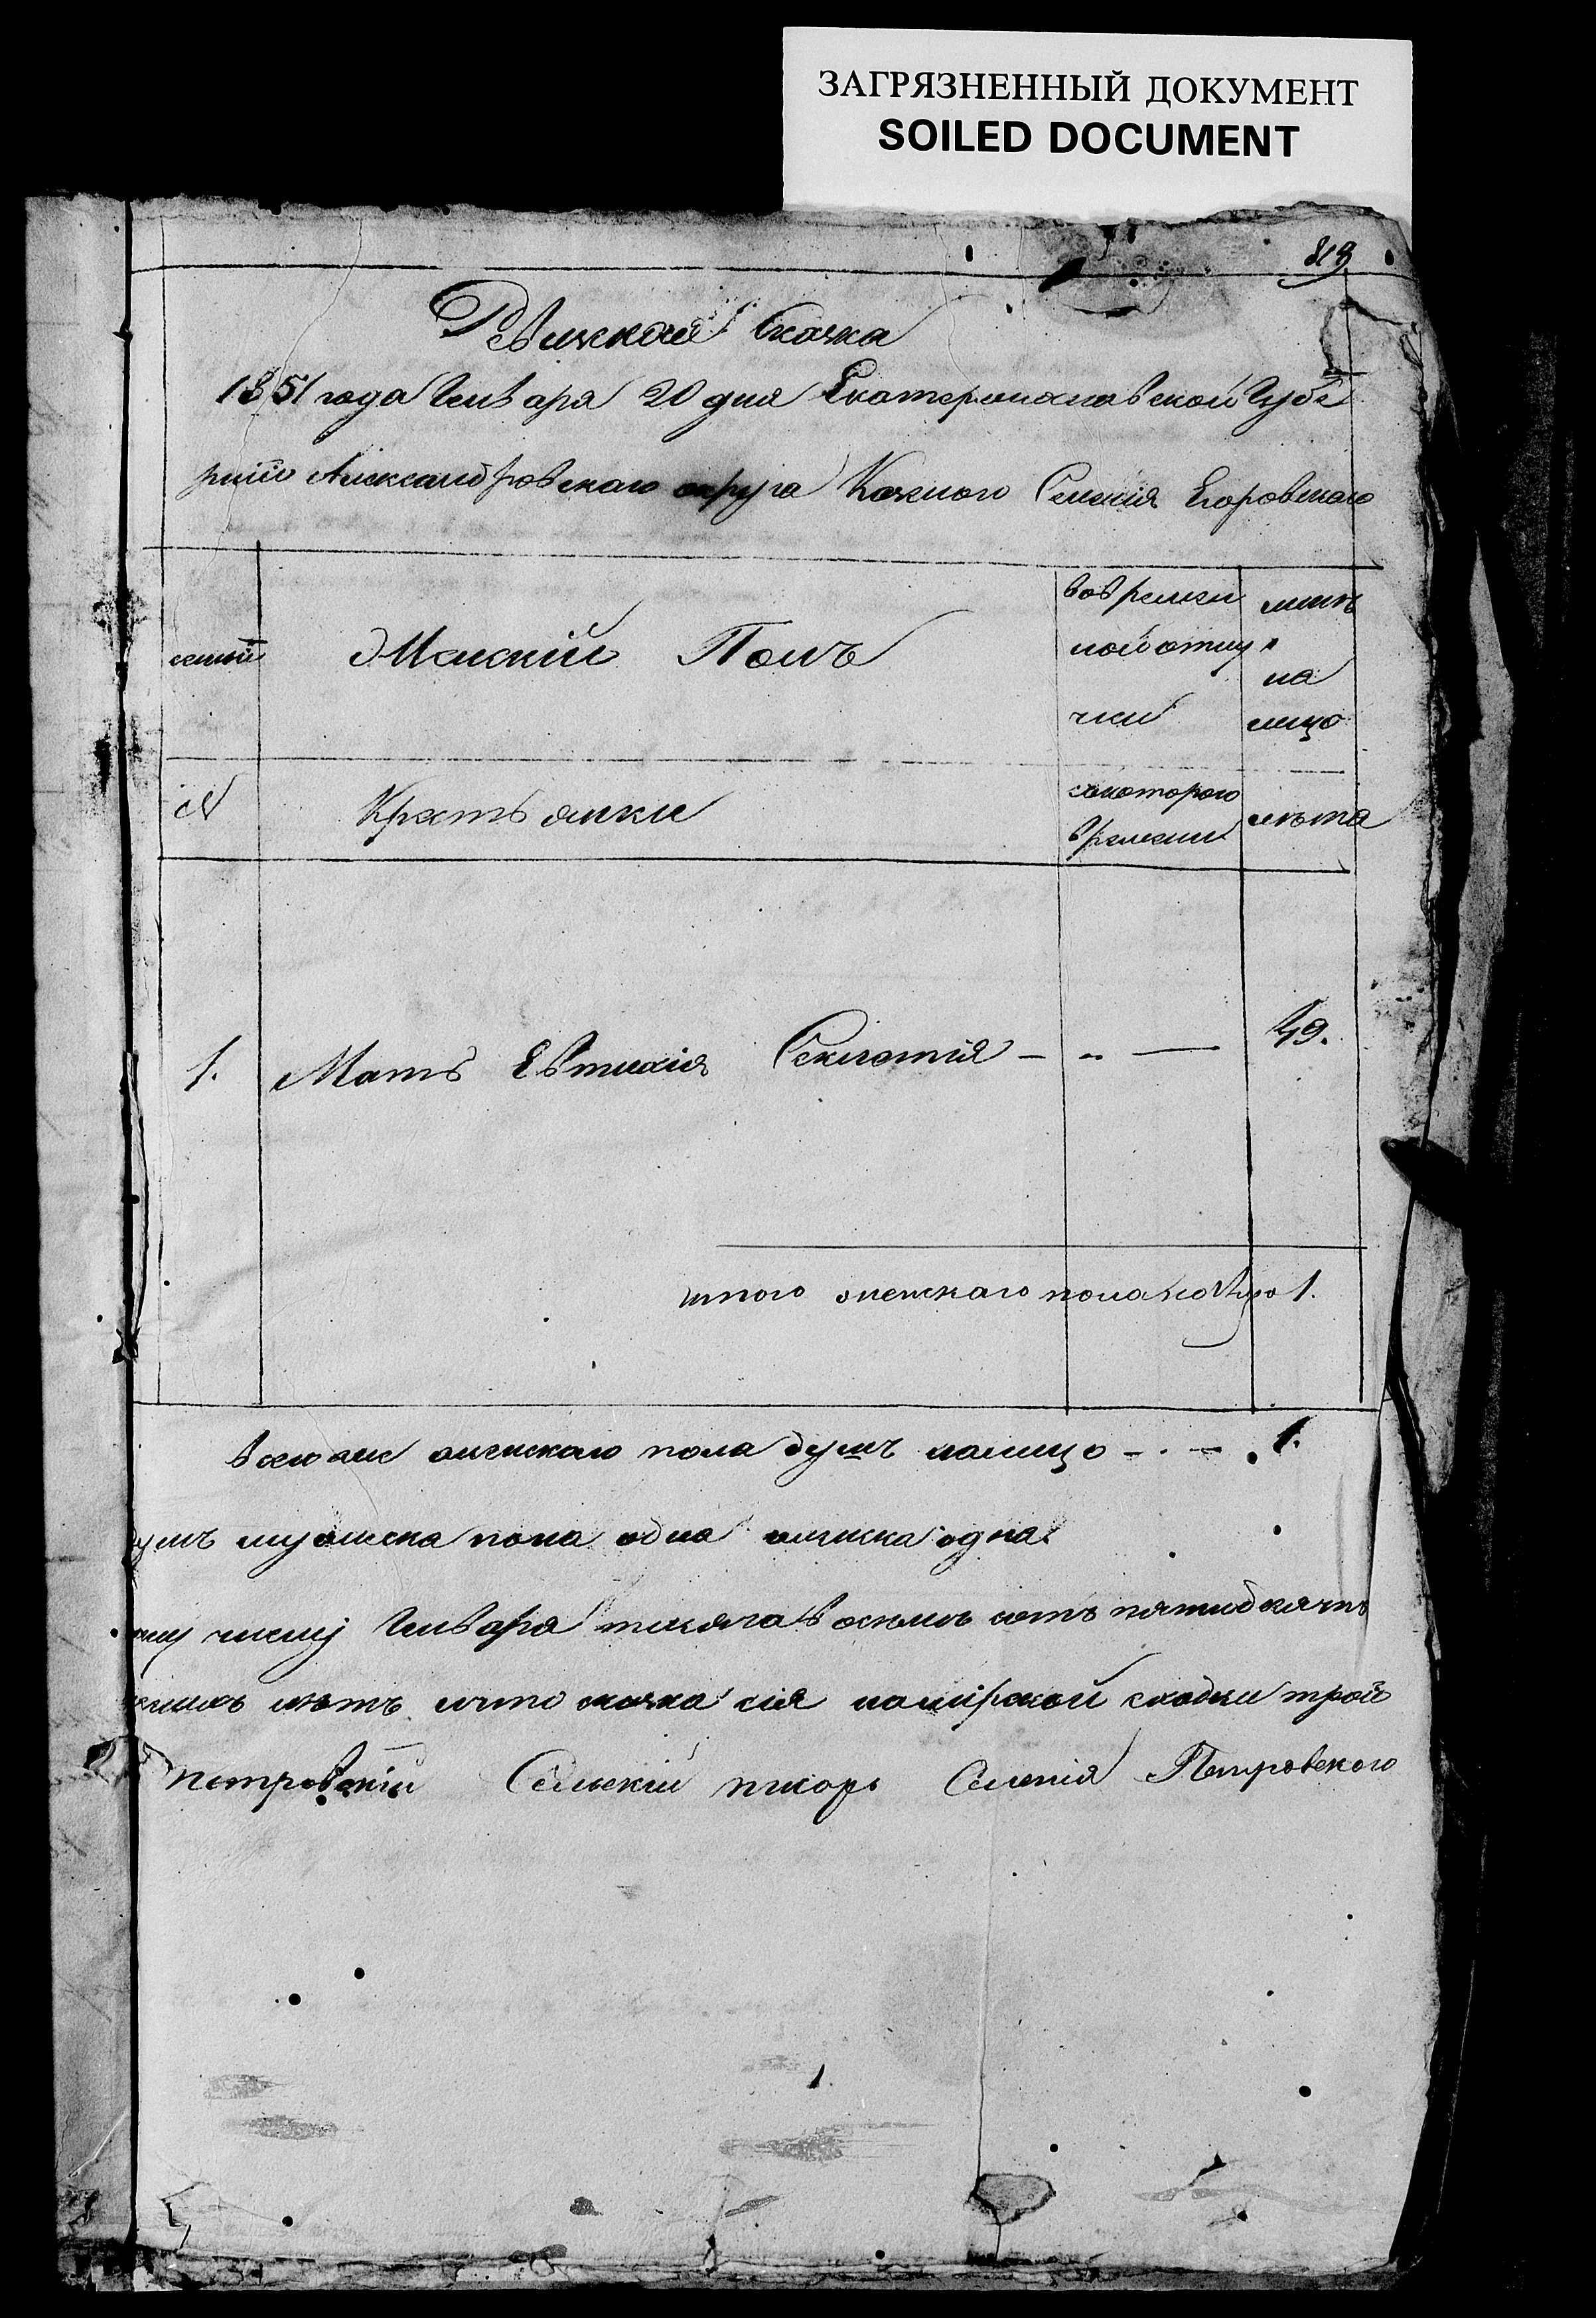 ЗАГРЯЗНЕННЫЙ ДОКУМЕНТ
SOILED DOCUMENT
Ревизкая Скаска
1851 года Генваря 20 дня Екатеринославской Губе
рнии Александровскаго округа Казеного Селения Егоровскаго
семьи
Женский Полъ
вовремен
ной отлу
чки
нынѣ
на
лицо
N
Крестьянки
скоторого
времени
лѣта
1. Мать Евтихия Секлетия — „ — 49.
итого женскаго пола налицо 1.
всеоже женскаго пола душъ налицо — . — 1.
душъ мужеска пола одна женска одна
числу Генваря тысяча восемь сотъ пятидесять
лѣтъ что скаска сия мирской сходки
Петровский Сельский писарь Селения Петровского